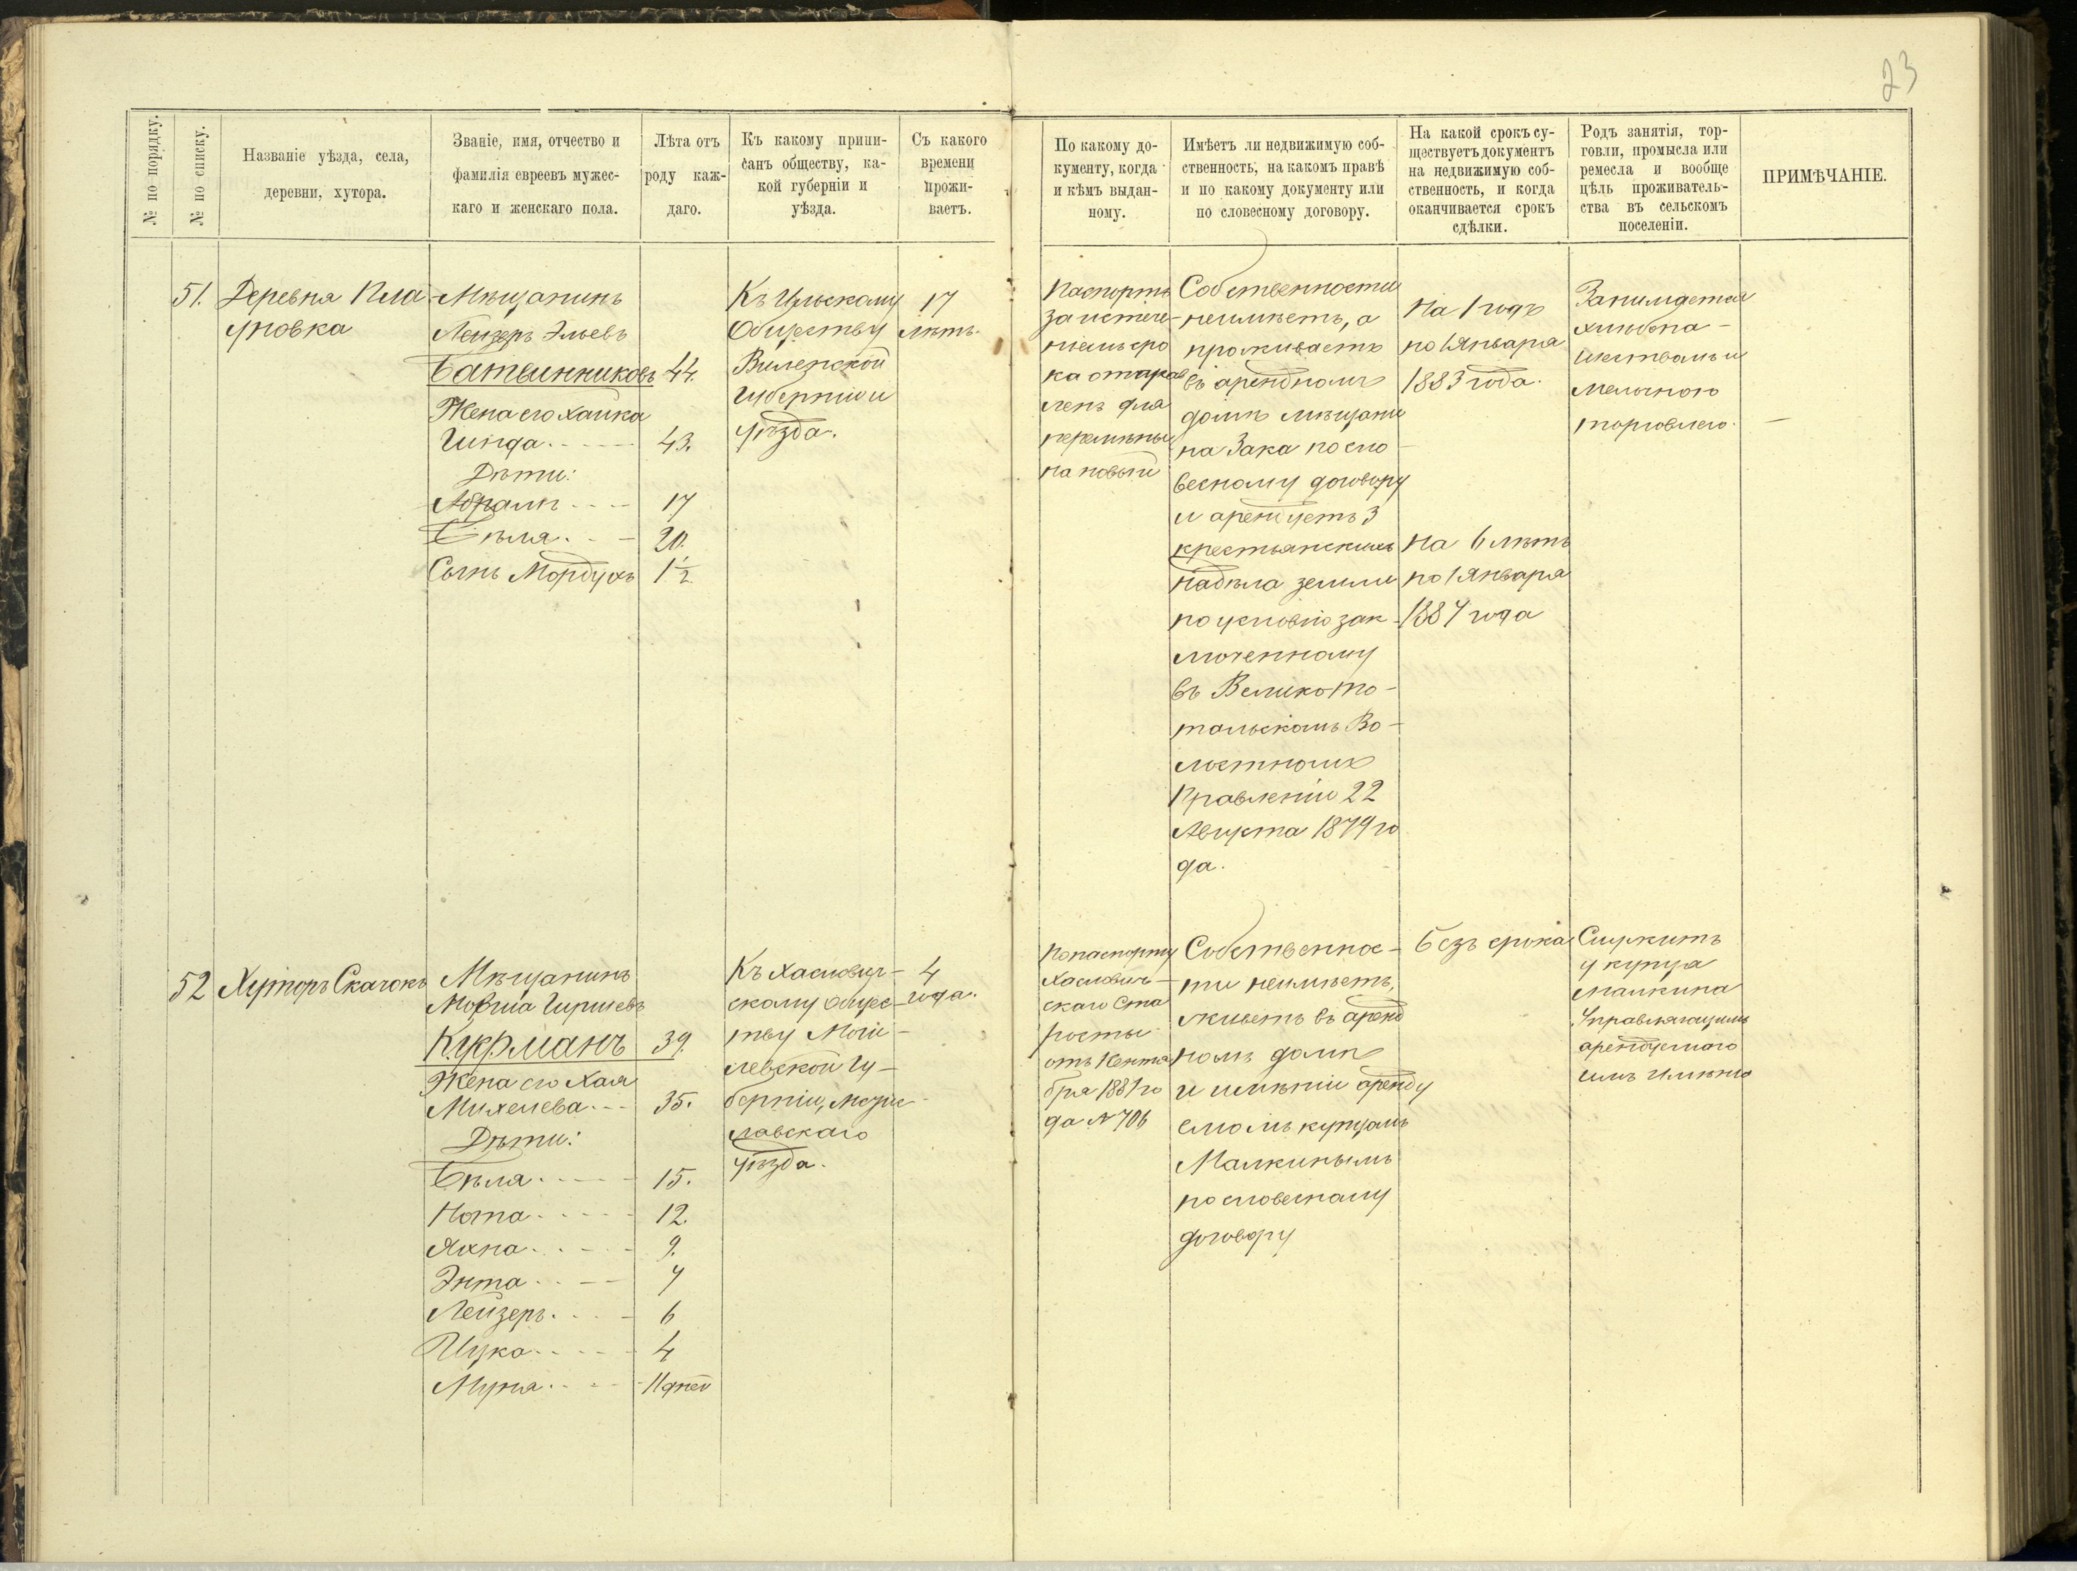 23
№ по порядку.
№ по списку.
Названіе уѣзда, села,
деревни, хутора.
Званіе, имя, отчество и
фамилія евреевъ мужес-
каго и женскаго пола.
Лѣта отъ
роду каж-
даго.
Къ какому припи-
санъ обществу, ка-
кой губерніи и
уѣзда.
Съ какого
времени
прожи-
ваетъ.
По какому до-
кументу, когда
и кѣмъ выдан-
ному.
Имѣетъ ли недвижимую соб-
ственность, на какомъ правѣ
и по какому документу или
по словесному договору.
На какой срокъ су-
ществуетъ документъ
на недвижимую соб-
ственность, и когда
оканчивается срокъ
сдѣлки.
Родъ занятія, тор-
говли, промысла или
ремесла и вообще
цѣль проживатель-
ства въ сельскомъ
поселеніи.
ПРИМѢЧАНІЕ.
51.
Деревня Пла
уновка
Мѣщанинъ
Лейзеръ Эльевъ
Батвинниковъ 44.
Жена его Хайка
Гинда 43.
Дѣти:
Абрамъ 17
Бѣля 20.
Сынъ Мордухъ 1½
Къ Ильскому
Обществу
Виленской
Губерніи и
уѣзда.
17
лѣтъ.
Паспортъ
за истече-
ніемъ сро
ка отправ
ленъ для
перемѣны
на новый
Собственности
неимѣетъ, а
проживаетъ
въ арендномъ
домѣ мѣщани
на Зака по сло
весному договору
и арендуетъ 3
крестьянскихъ
надѣла земли
по условію зак
люченному
въ Великото-
пальскомъ Во-
лостномъ
Правленіи 22
Августа 1879 го
да.
На 1 годъ
по 1 Января
1883 года.
На 6 лѣтъ
по 1 Января
1887 года
Занимается
хлѣбопа-
шествомъ и
мелочною
торговлею.
52
Хуторъ Скачокъ
Мѣщанинъ
Мовша Гиршевъ
Куфманъ 39.
Жена его Хая
Михелева 35.
Дѣти:
Бѣля 15.
Нота 12.
Яхна 9.
Энта 7
Лейзеръ 6
Ицко 4
Муня 11 дней
Къ Хаслович-
скому общес-
тву Моги-
левской Гу-
берніи, Мсти-
славскаго
уѣзда.
4
года.
По паспорту
Хаслович-
скаго Ста
росты
бря 1881 го
да № 706
Собственнос-
ти неимѣетъ,
живетъ въ аренд
номъ домѣ
и имѣніи аренду
емомъ купцомъ
Малкинымъ
по словесному
договору
Безъ срока
Служитъ
у купца
Малкина
Управляющимъ
арендуемаго
имъ имѣнія